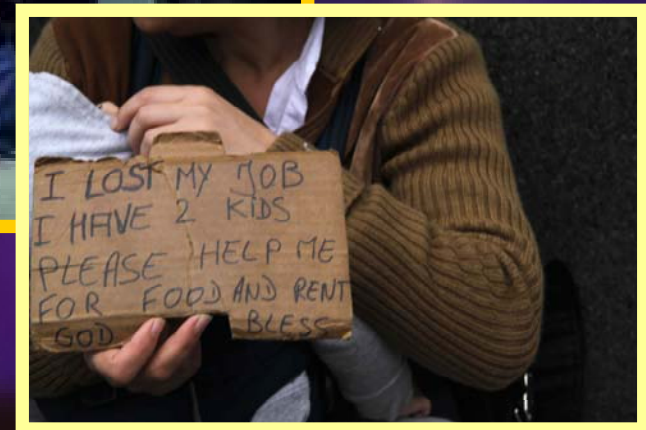 I LOST MY JOB
I HAVE 2 KIDS
PLEASE HELP ME
FOR FOOD AND RENT
GOD BLESS